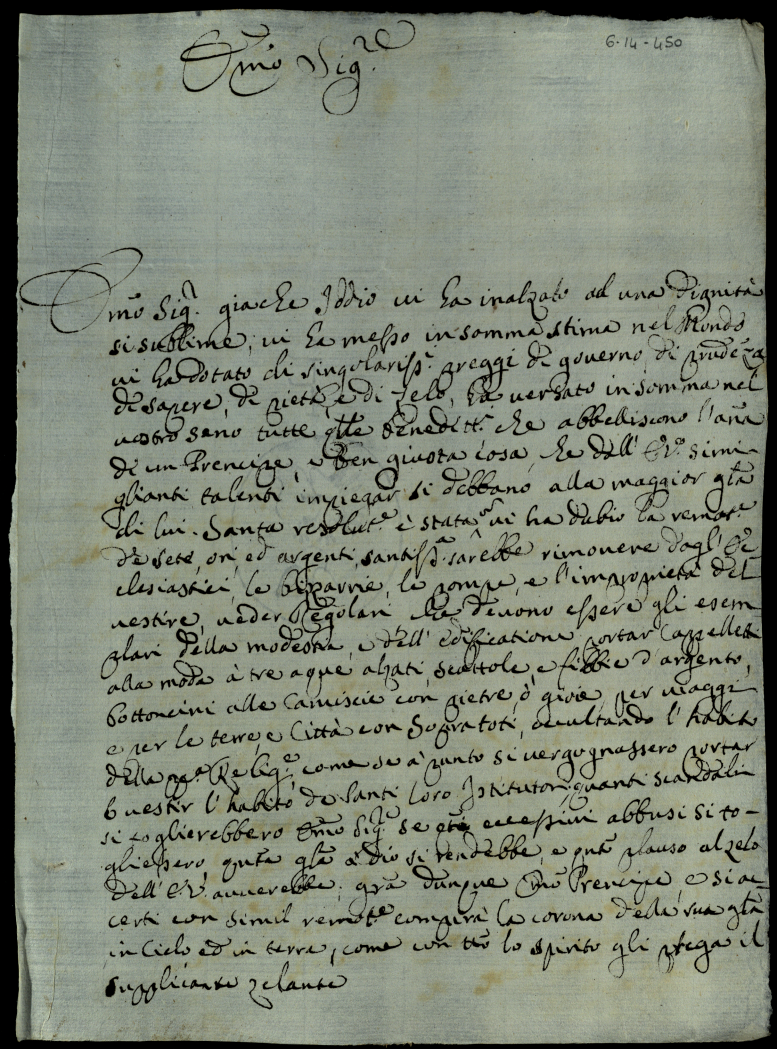 6-14-450
Em̃o Sig.re
Em̃o Sig.r giache Iddio vi ha inalzato ad una dignità
si sublime, vi ha messo in somma stima nel Mondo
vi ha dotato di singolariss.i preggi di governo, di prudẽza
di sapere, di pietà, e di zelo, ha versato in somma nel
vostro seno tutte q̃lle beneditt.i che abbelliscono l'anã
di un Prencipe, e ben giusta cosa, che dall' E.V. simi
glianti talenti impiegar si debbano alla maggior glã
di lui. Santa resolut.e è stata
de sete, ori, ed argenti, santiss.a sarebbe rimovere dagl' Ec
clesiastici, le bizarrie, le pompe, e l'improprietà del
vestire, veder Regolari che devono essere gli esem
plari della modestia, e dell' edificatione portar Cappelletti
alla moda à tre aque alzati, scattole, e fibbie d'argento,
bottoncini alle Camiscie con pietre, ò gioie, per viaggi
e per le terre, e Città con Sopratoti, occultando l'habito
della Relig.e, come se à punto si vergognassero portar
ò vestir l'habito de Santi loro Istitutori, quanti scandali
si toglierebbero Em̃o Sig.r se eccessivi abbusi si to-
gliessero, qũta glã à Dio si rendebbe, e qũto plauso al zelo
dell' E.V. avverebbe; dunque Em̃o Prencipe, e si ac
certi con simil compirà la corona della sua glã
in Cielo ed in terra, come con tt̃o lo spirito gli prega il
supplicante zelante